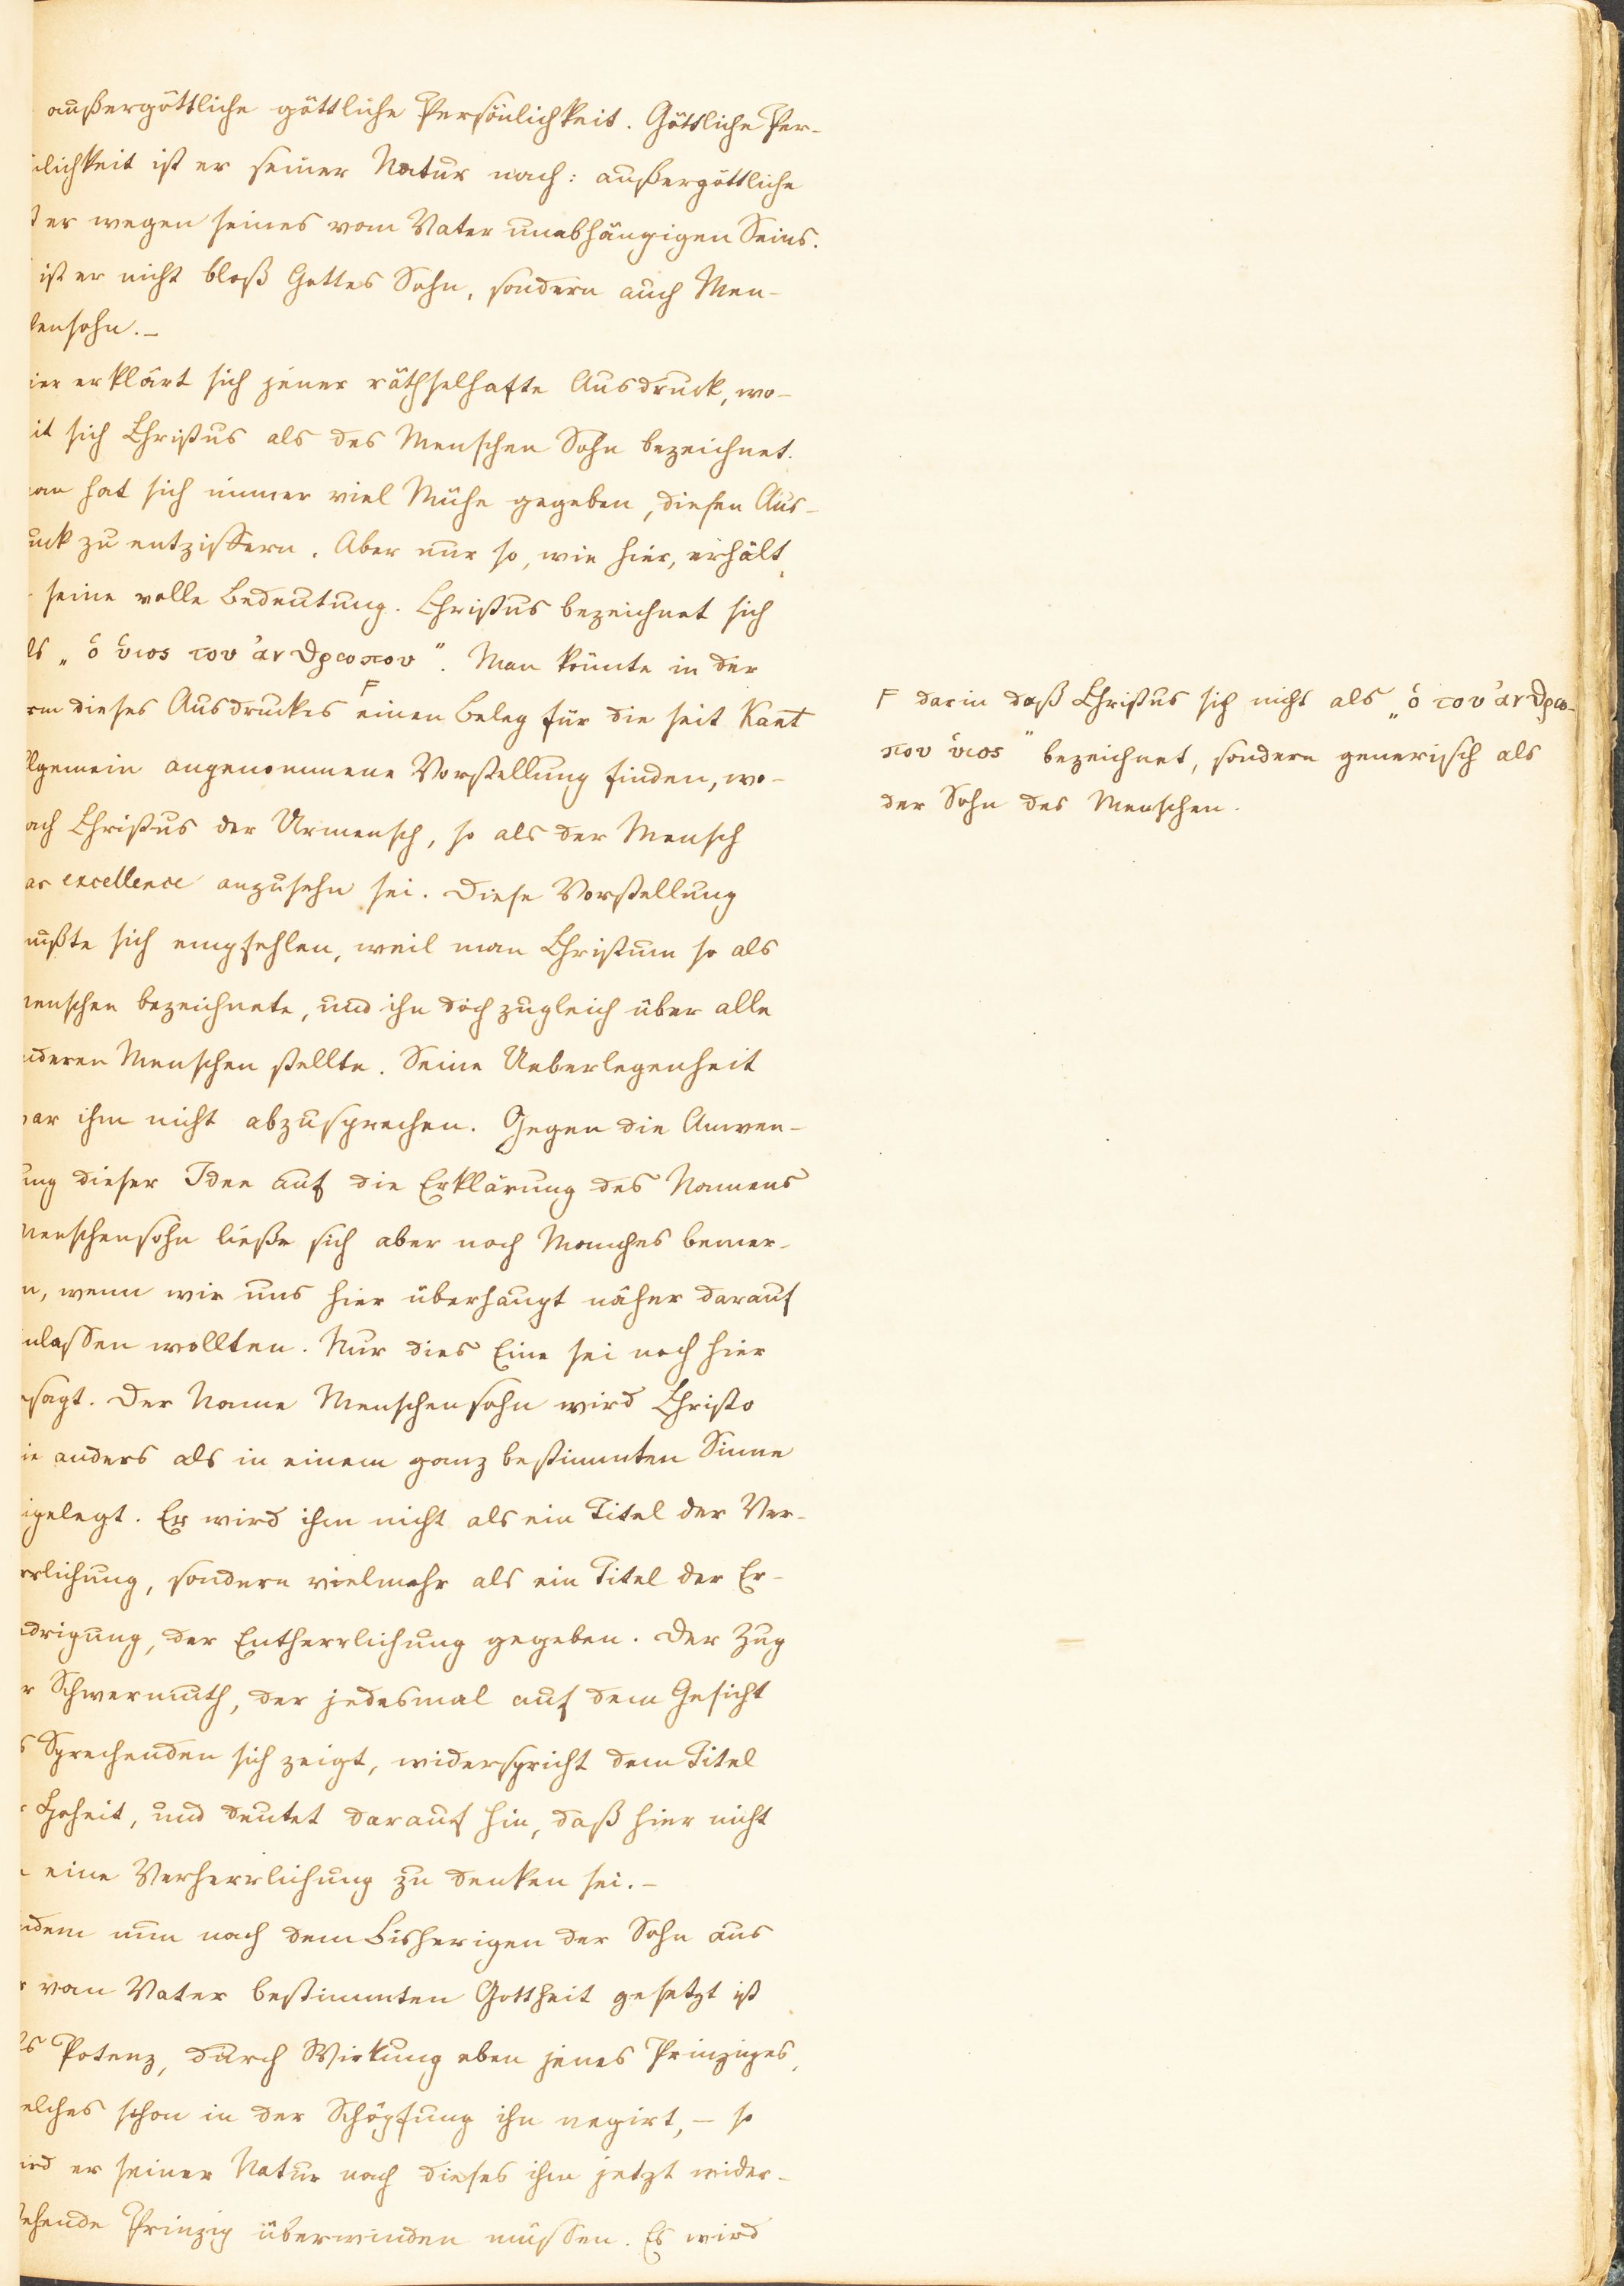 außergöttliche göttliche Persönlichkeit. Göttliche Per-
lichkeit ist er seiner Natur nach: außergöttliche
er wegen seines vom Vater unabhängigen Seins.
ist er nicht bloß Gottes Sohn, sondern auch Men-
ensohn.–
ier erklärt sich jener räthselhafte Ausdruck, wo-
it sich Christus als des Menschen Sohn bezeichnet.
an hat sich immer viel Mühe gegeben, diesen Aus-
uck zu entziffern. Aber nur so, wie hier, erhält
seine volle Bedeutung. Christus bezeichnet sich
ls „ὁ ὑιος του ἀνθρωπου“. Man könnte in der
rm dieses Ausdruckes F einen Beleg für die seit Kant
llgemein angenommene Vorstellung finden, wo-
ach Christus der Urmensch, so als der Mensch
ar excellence anzusehn sei. Diese Vorstellung
ußte sich empfehlen, weil man Christum so als
enschen bezeichnete, und ihn doch zugleich über alle
nderen Menschen stellte. Seine Ueberlegenheit
ar ihm nicht abzusprechen. Gegen die Anwen-
ung dieser Idee auf die Erklärung des Namens
Menschensohn ließe sich aber noch Manches bemer-
n, wenn wir uns hier überhaupt näher darauf
nlassen wollten. Nur dies Eine sei noch hier
sagt. Der Name Menschensohn wird Christo
ie anders als in einem ganz bestimmten Sinne
igelegt. Er wird ihm nicht als ein Titel der Ver-
rrlichung, sondern vielmehr als ein Titel der Er-
drigung, der Entherrlichung gegeben. Der Zug
r Schwermuth, der jedesmal auf dem Gesicht
s Sprechenden sich zeigt, widerspricht dem Titel
r Hoheit, und deutet darauf hin, daß hier nicht
eine Verherrlichung zu denken sei.–
ndem nun nach dem Bisherigen der Sohn aus
r vom Vater bestimmten Gottheit gesetzt ist
ls Potenz, durch Wirkung eben jenes Prinzipes,
elches schon in der Schöpfung ihn negirt, – so
ird er seiner Natur nach dieses ihm jetzt wider-
ehende Prinzip überwinden müssen. Es wird
F darin daß Christus sich nicht als „ὁ του ἀνθρω-
που ὑιος“ bezeichnet, sondern generisch als
der Sohn des Menschen.